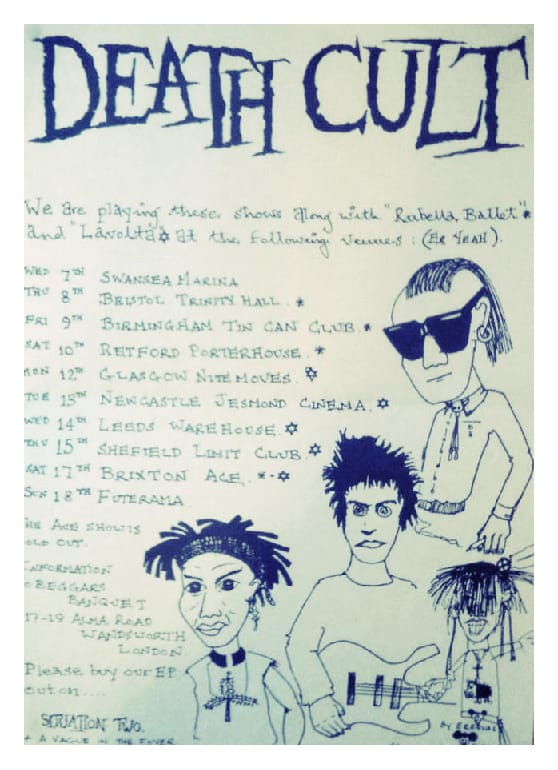 DEATH CULT
We are playing these shows along with "Rubella Ballet"*
and "Lavolta"✡ at the following venues : (ER YEAH).
WED 7TH SWANSEA MARINA
THU 8TH BRISTOL TRINITY HALL. *
FRI 9TH BIRMINGHAM TIN CAN CLUB. *
SAT 10TH RETFORD PORTERHOUSE. *
MON 12TH GLASGOW NITEMOVES. ✡
TUE 13TH NEWCASTLE JESMOND CINEMA. ✡
WED 14TH LEEDS WAREHOUSE. ✡
THU 15TH SHEFIELD LIMIT CLUB. ✡
SAT 17TH BRIXTON ACE. *.✡
SUN 18TH FUTERAMA
HE ACE SHOW IS
OLD OUT.
INFORMATION
BEGGARS
BANQUET
17-19 ALMA ROAD
WANDSWORTH
LONDON.
Please buy our EP
out on.....
SITUATION TWO.
+ A VAGUE IN THE FOYER
BY